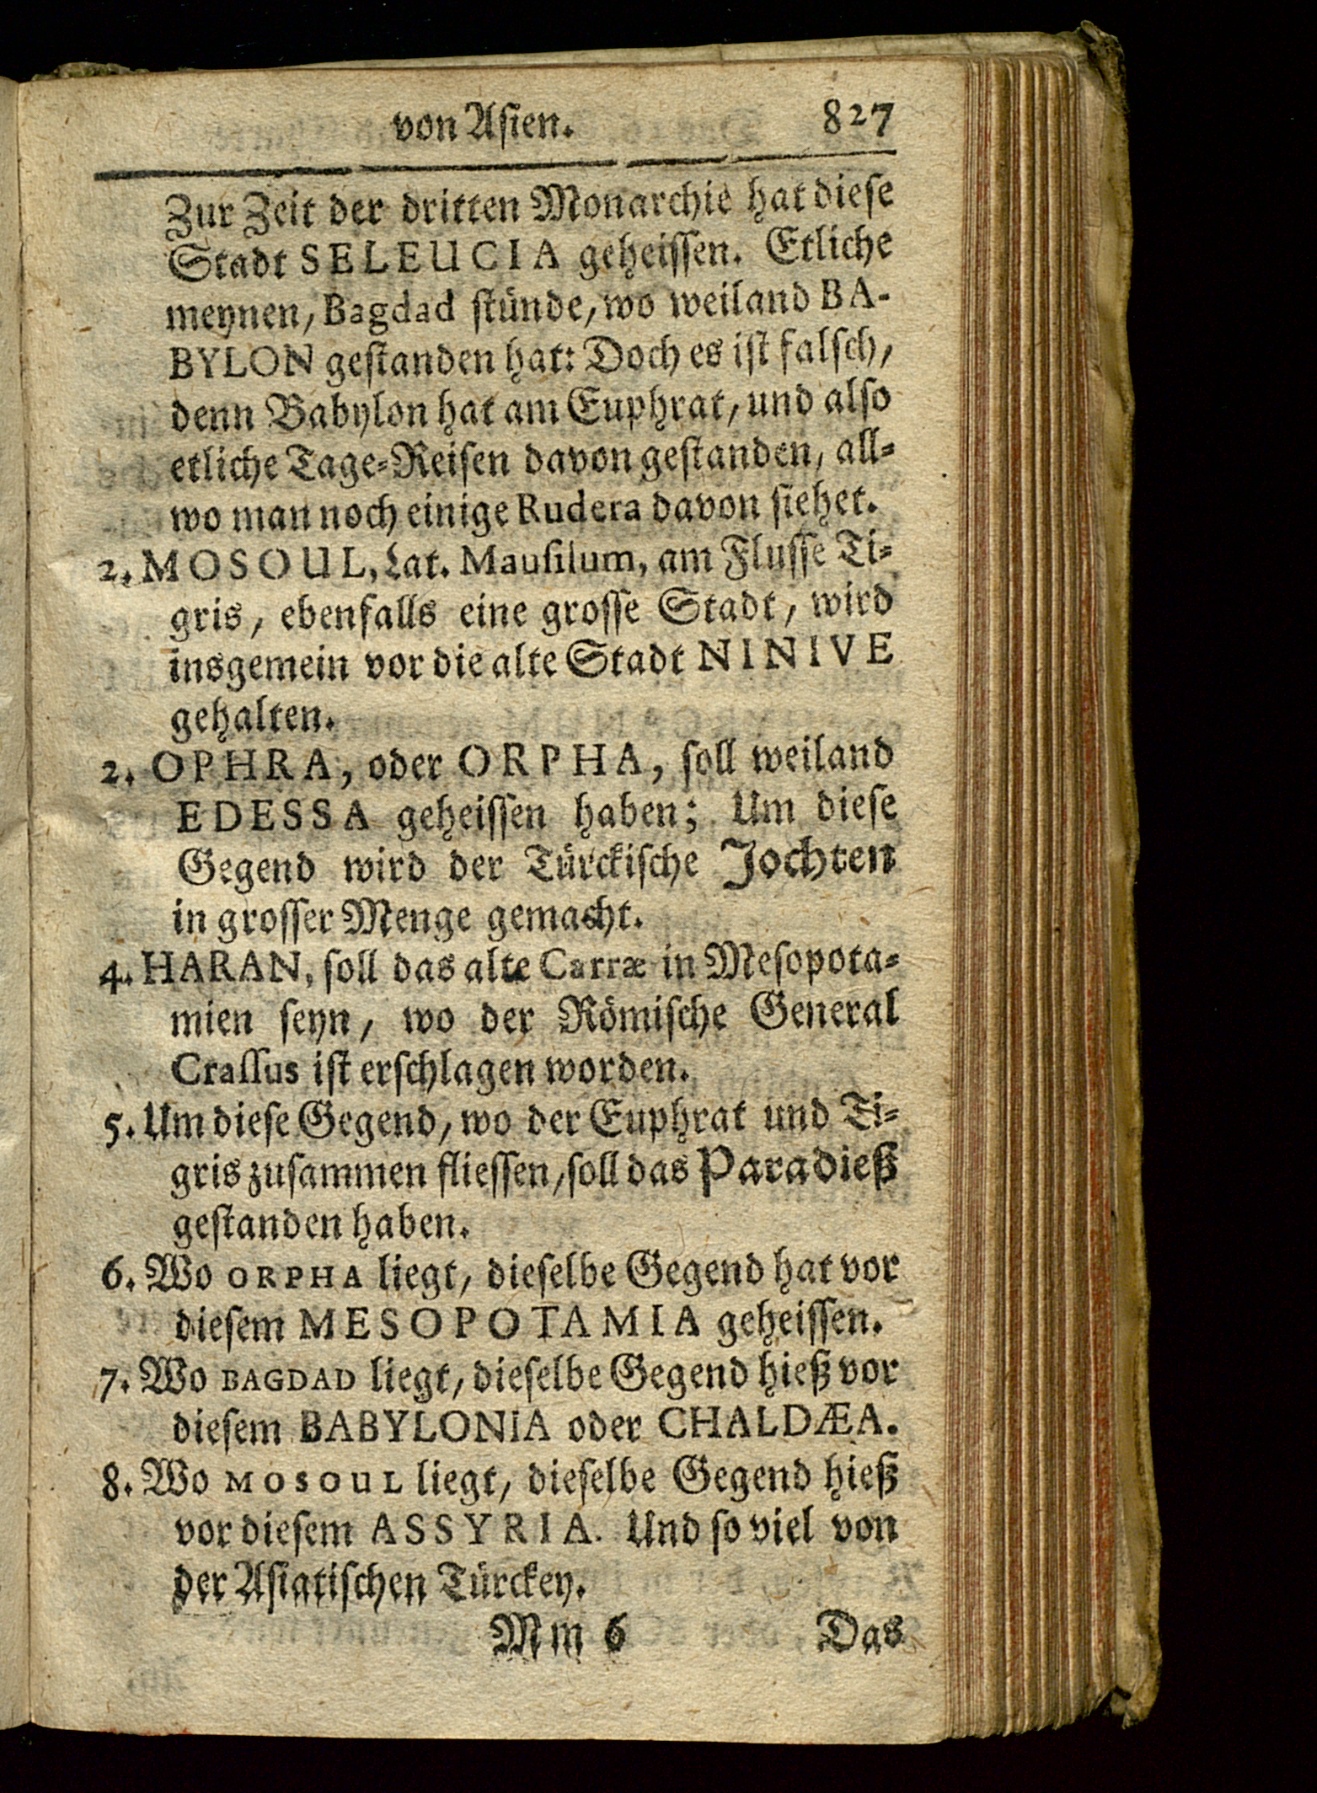 von Asien. 827
Zur Zeit der dritten Monarchie hat diese
Stadt SELEUCIA geheissen. Etliche
meynen, Bagdad stünde, wo weiland BA-
BYLON gestanden hat: Doch es ist falsch,
denn Babylon hat am Euphrat, und also
etliche Tage-Reisen davon gestanden, all-
wo man noch einige Rudera davon siehet.
2. MOSOUL, Lat. Mausilum, am Flusse Ti-
gris, ebenfalls eine grosse Stadt, wird
insgemein vor die alte Stadt NINIVE
gehalten.
2. OPHRA, oder ORPHA, soll weiland
EDESSA geheissen haben; Um diese
Gegend wird der Türckische Jochten
in grosser Menge gemacht.
4. HARAN, soll das alte Carræ in Mesopota-
mien seyn, wo der Römische General
Crassus ist erschlagen worden.
5. Um diese Gegend, wo der Euphrat und Ti-
gris zusammen fliessen, soll das Paradieß
gestanden haben.
6. Wo ORPHA liegt, dieselbe Gegend hat vor
diesem MESOPOTAMIA geheissen.
7. Wo BAGDAD liegt, dieselbe Gegend hieß vor
diesem BABYLONIA oder CHALDÆA.
8. Wo MOSOUL liegt, dieselbe Gegend hieß
vor diesem ASSYRIA. Und so viel von
der Asiatischen Türckey.
Mm 6 Das